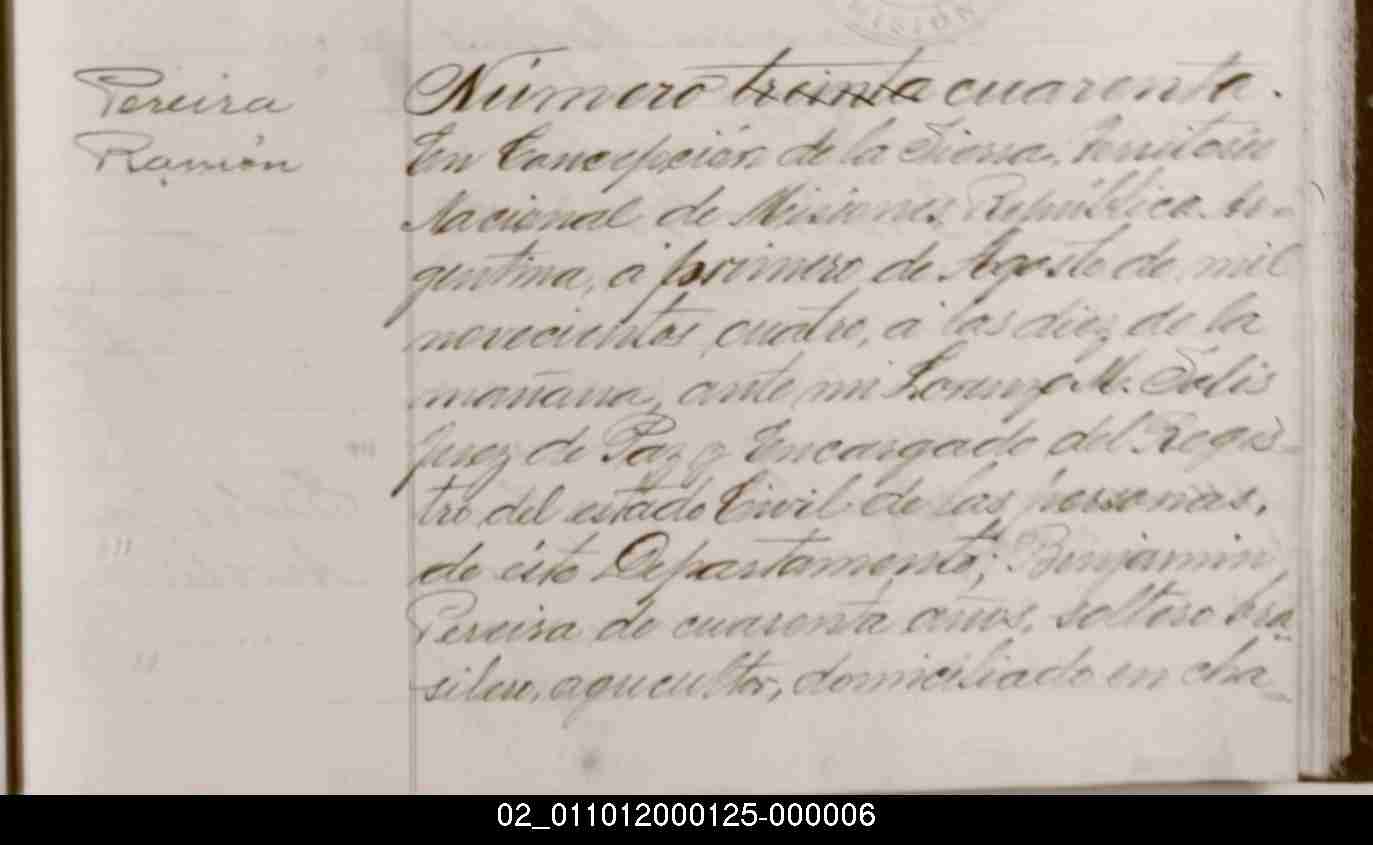 VISIÓN
Pereira
Ramón
Número treinta cuarenta.
En Concepción de la Sierra, Territorio
Nacional de Misiones, República Ar-
gentina, á primero de Agosto de mil
novecientos cuatro, á las diez de la
mañana, ante mi Lorenzo M. Solis
Juez de Paz y Encargado del Regis-
tro del estado Civil de las personas,
de éste Departamento; Benjamin
Pereira de cuarenta años, soltero bra-
silero, agricultor, domiciliado en cha-
02_011012000125-000006